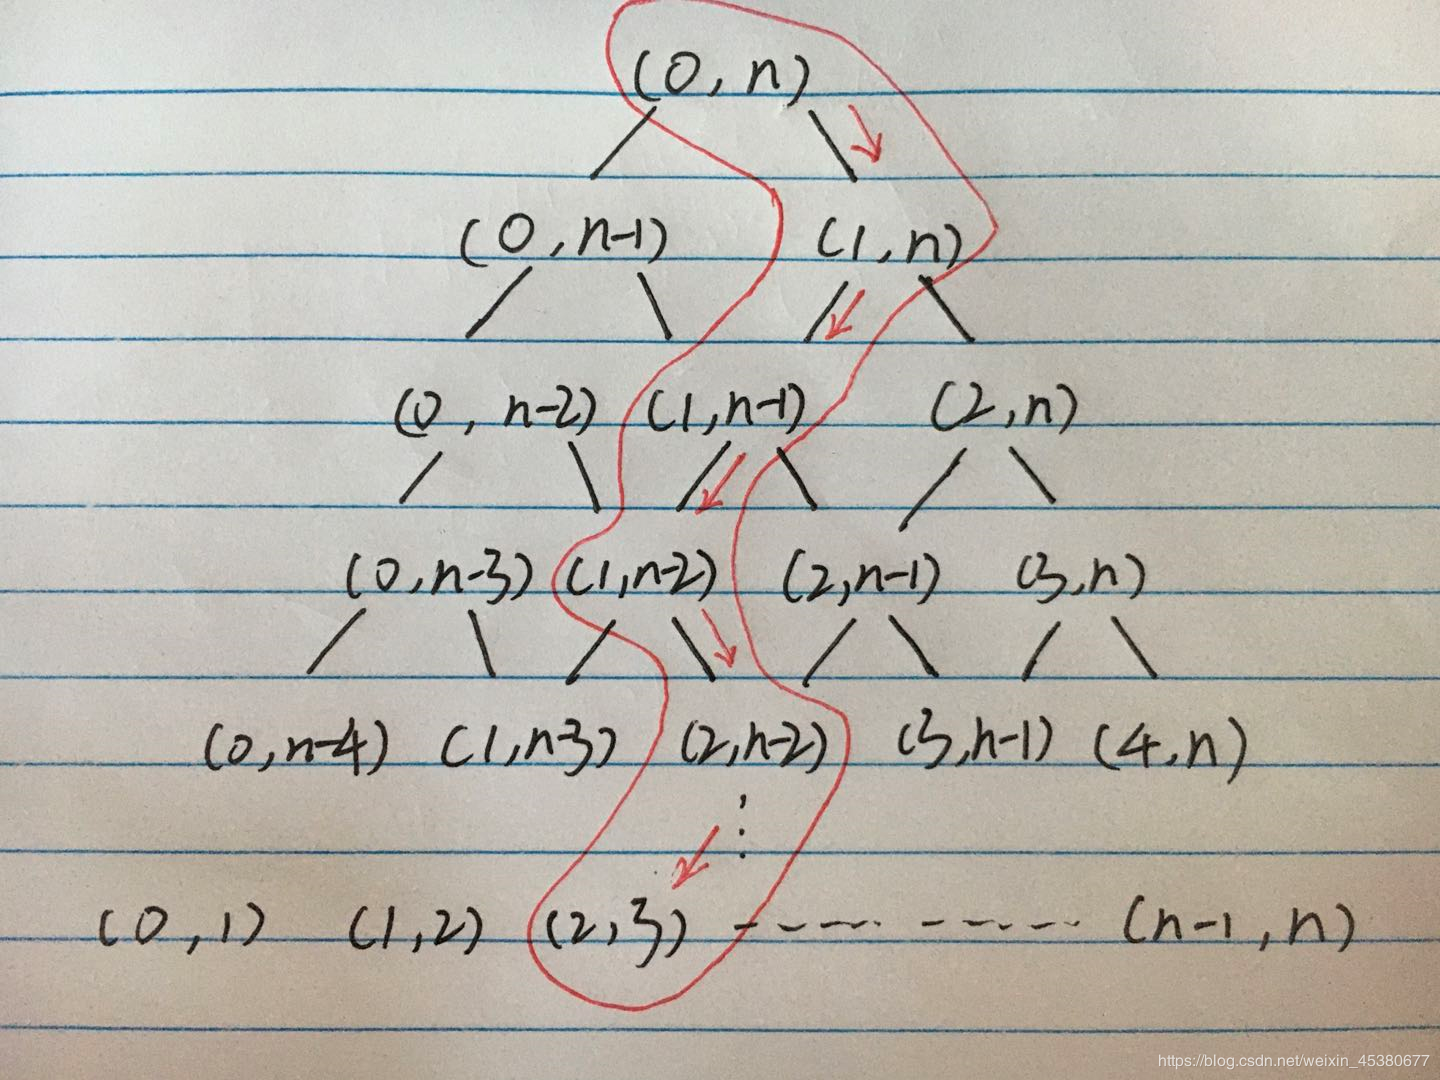 (0, n)
(0, n-1) (1, n)
(0, n-2) (1, n-1) (2, n)
(0, n-3) (1, n-2) (2, n-1) (3, n)
(0, n-4) (1, n-3) (2, n-2) (3, n-1) (4, n)
(0, 1) (1, 2) (2, 3) ------- (n-1, n)
https://blog.csdn.net/weixin_45380677